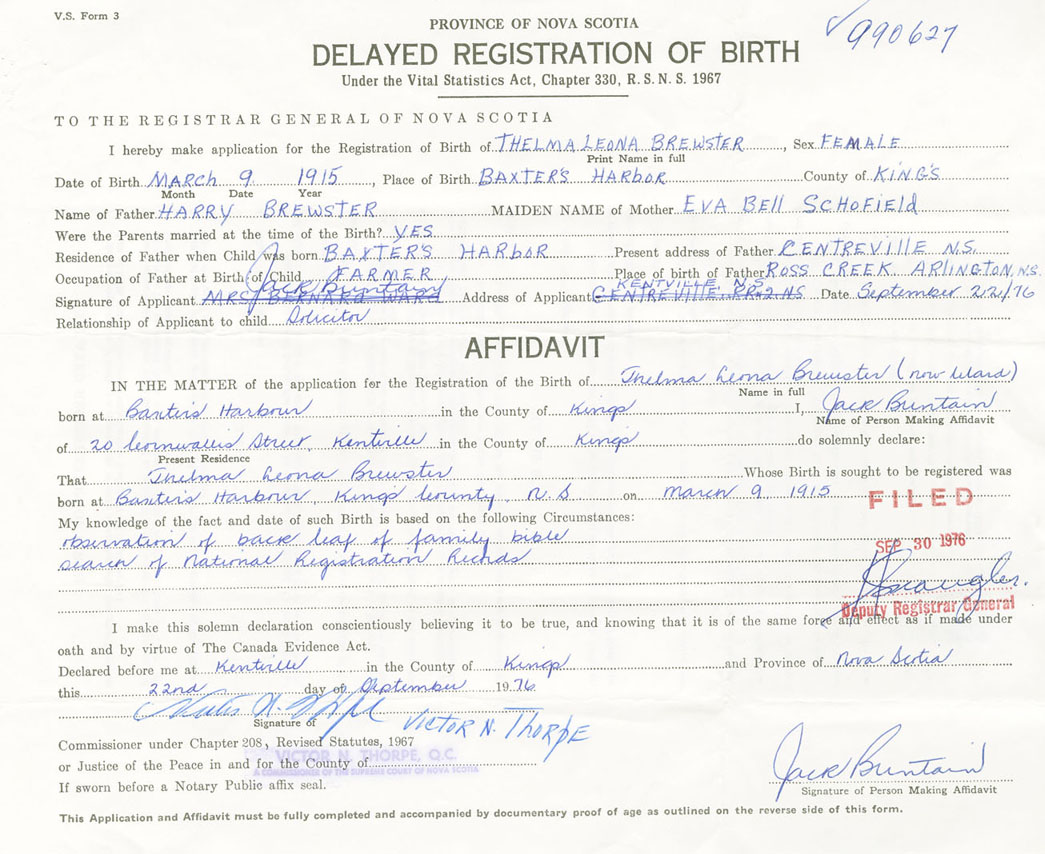 V.S. Form 3
PROVINCE OF NOVA SCOTIA
990627
DELAYED REGISTRATION OF BIRTH
Under the Vital Statistics Act, Chapter 330, R.S.N.S. 1967
TO THE REGISTRAR GENERAL OF NOVA SCOTIA
I hereby make application for the Registration of Birth of THELMA LEONA BREWSTER, Sex FEMALE
Print Name in full
Date of Birth MARCH 9 1915, Place of Birth BAXTER'S HARBOR County of KING'S
Month Date Year
Name of Father HARRY BREWSTER MAIDEN NAME of Mother EVA BELL SCHOFIELD
Were the Parents married at the time of the Birth? YES
Residence of Father when Child was born BAXTER'S HARBOR Present address of Father CENTREVILLE N.S.
Occupation of Father at Birth of Child FARMER Place of birth of Father ROSS CREEK ARLINGTON, N.S.
Jack Buntain KENTVILLE N.S.
Signature of Applicant MRS BERNARD WARD Address of Applicant CENTREVILLE, RR2 NS Date September 22/76
Relationship of Applicant to child Solicitor
AFFIDAVIT
IN THE MATTER of the application for the Registration of the Birth of Thelma Leona Brewster (now Ward)
Name in full
born at Baxters Harbour in the County of Kings I, Jack Buntain
Name of Person Making Affidavit
of 20 Cornwallis Street, Kentville in the County of Kings do solemnly declare:
Present Residence
That Thelma Leona Brewster Whose Birth is sought to be registered was
born at Baxters Harbour, Kings County, N.S on March 9 1915
FILED
My knowledge of the fact and date of such Birth is based on the following Circumstances:
observation of back leaf of family bible
SEP 30 1976
search of National Registration Records
Deputy Registrar General
I make this solemn declaration conscientiously believing it to be true, and knowing that it is of the same force and effect as if made under
oath and by virtue of The Canada Evidence Act.
Declared before me at Kentville in the County of Kings and Province of Nova Scotia
this 22nd day of September 1976
Victor N. Thorpe VICTOR N. THORPE
Signature of
Commissioner under Chapter 208, Revised Statutes, 1967
VICTOR N. THORPE, Q.C.
or Justice of the Peace in and for the County of
A COMMISSIONER OF THE SUPREME COURT OF NOVA SCOTIA
Jack Buntain
If sworn before a Notary Public affix seal.
Signature of Person Making Affidavit
This Application and Affidavit must be fully completed and accompanied by documentary proof of age as outlined on the reverse side of this form.